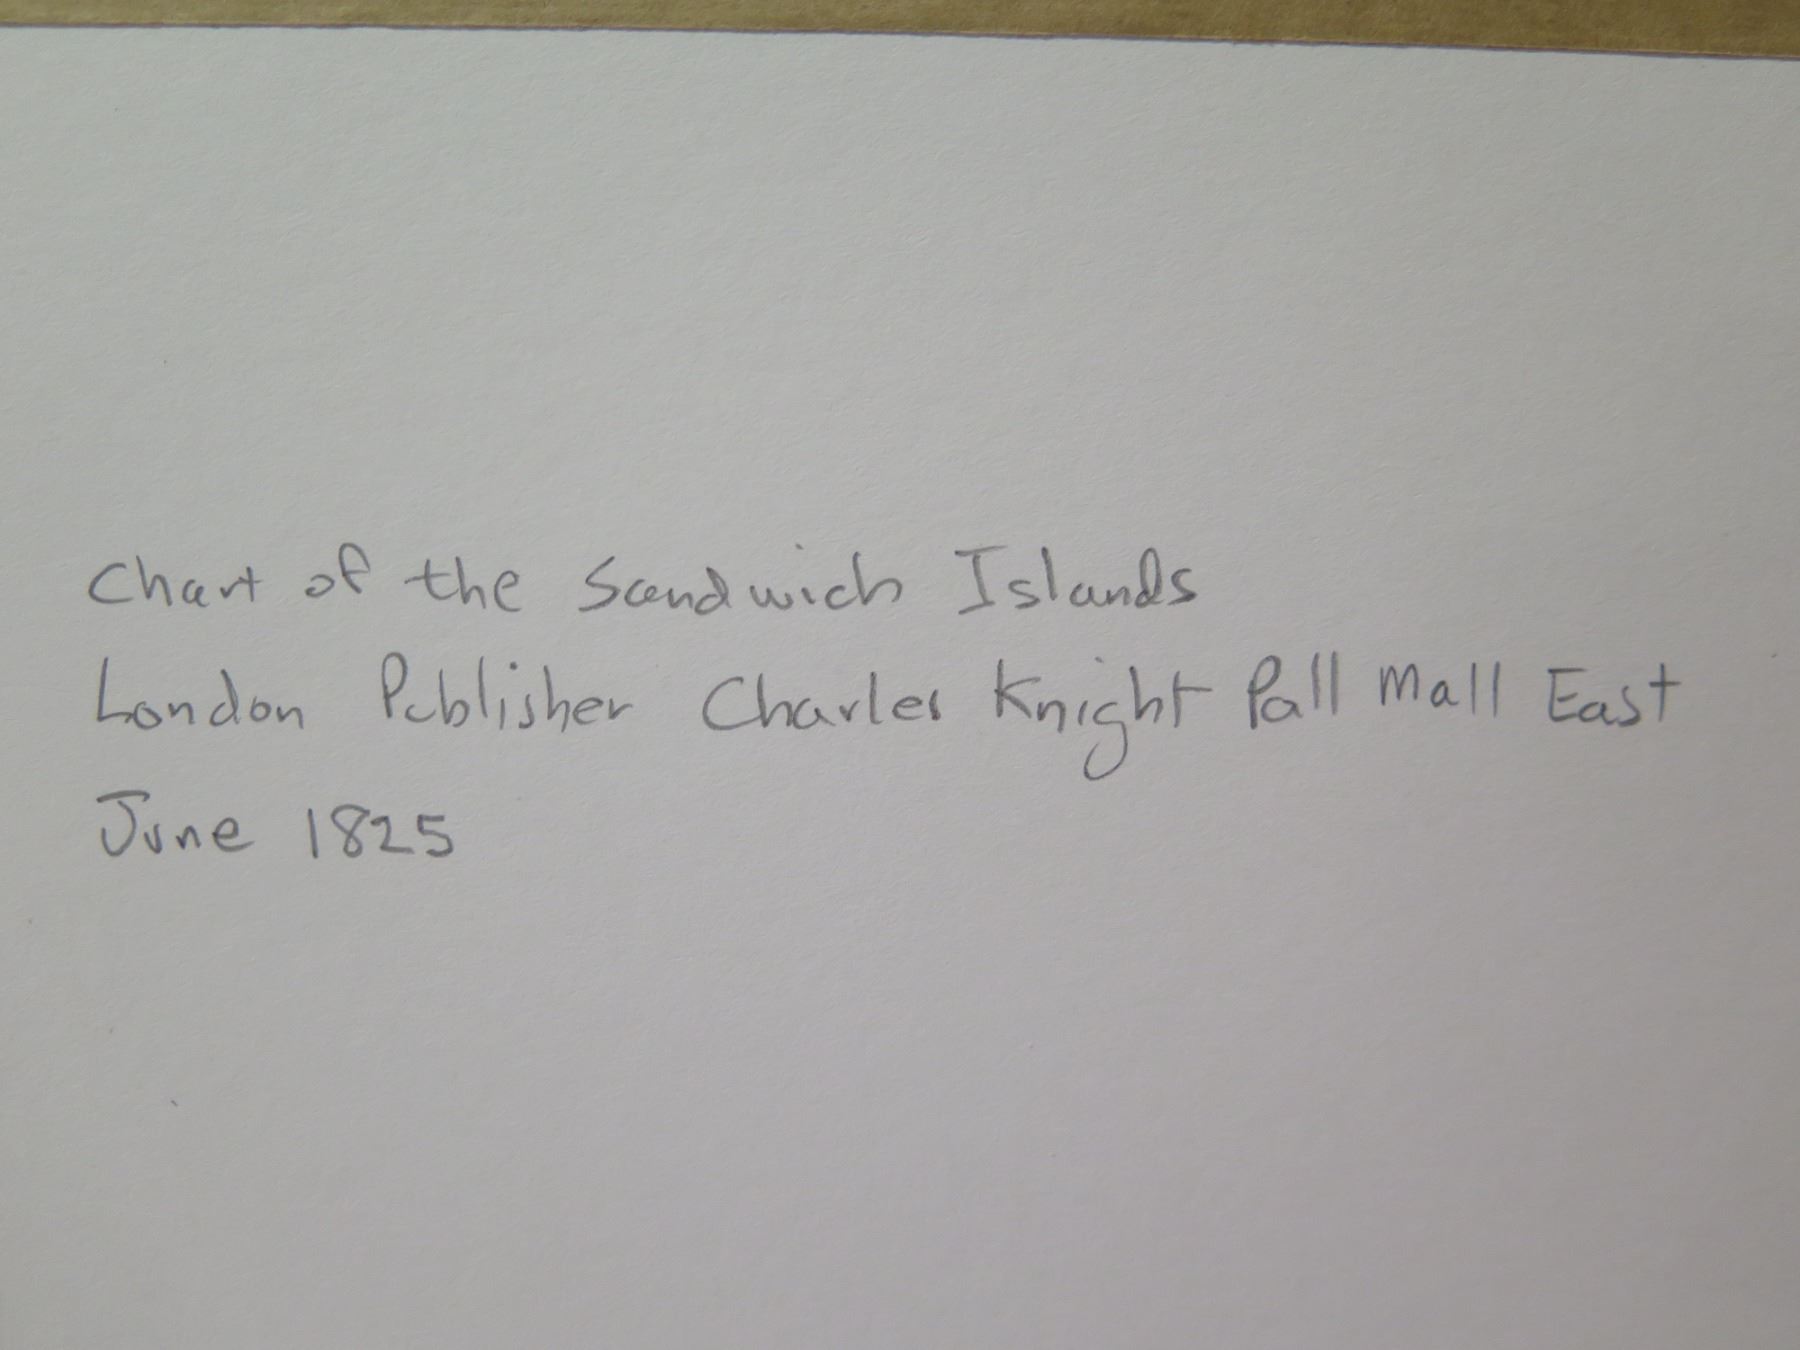 Chart of the Sandwich Islands
London Publisher Charles Knight Pall Mall East
June 1825